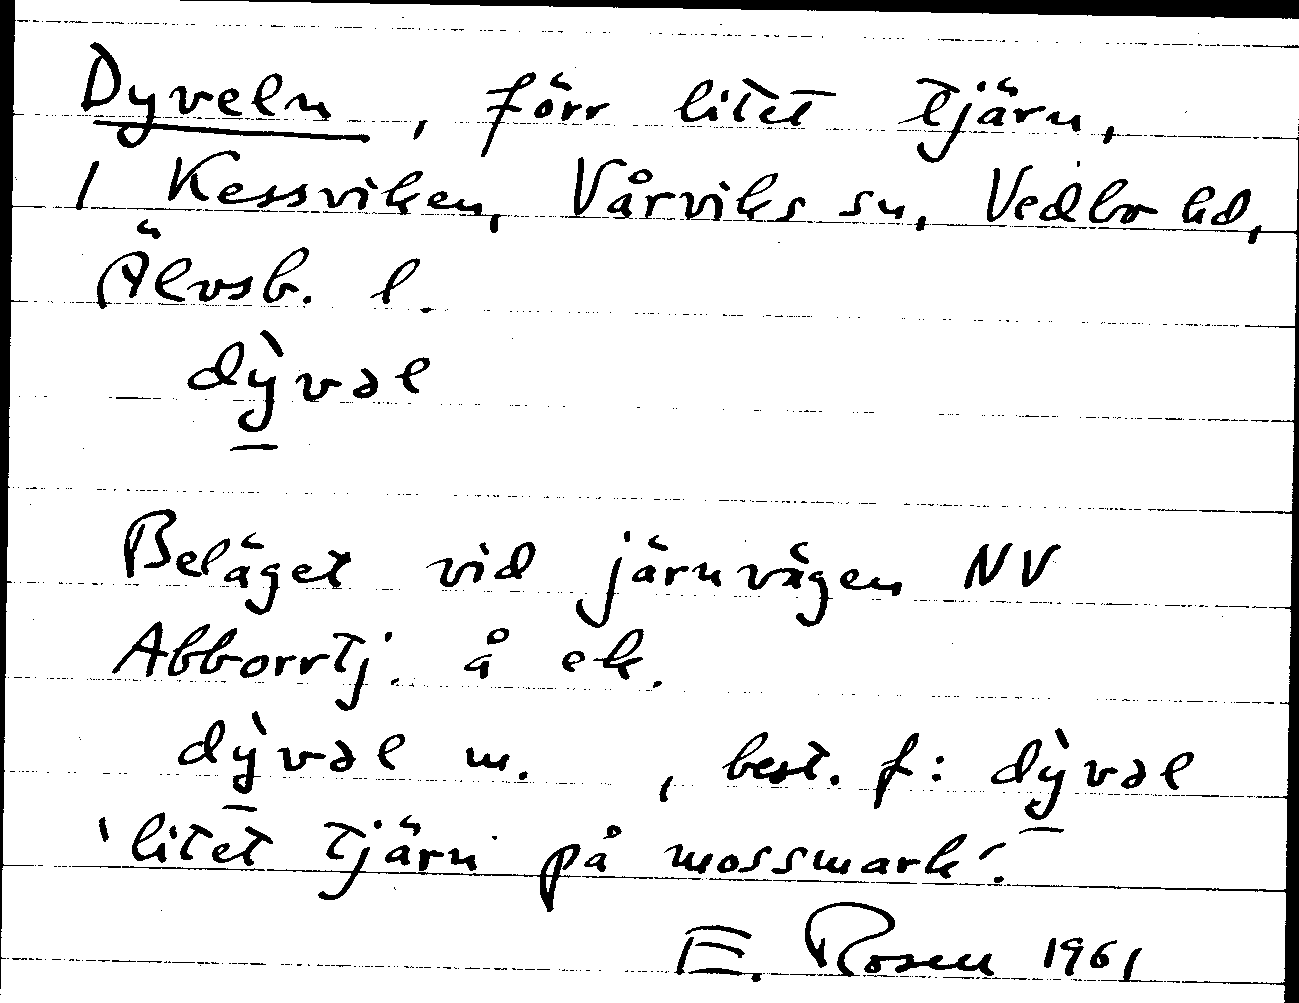 Dyveln, förr litet tjärn,
i Kessviken, Vårviks sn, Vedbo hd,
Älvsb. l.
dỳ̱vəl
Beläget vid järnvägen NV
Abborrtj. å ek.
dỳ̱vəl m. , best. f: dỳ̱vəl
'litet tjärn på mossmark'.
E. Rosen 1961